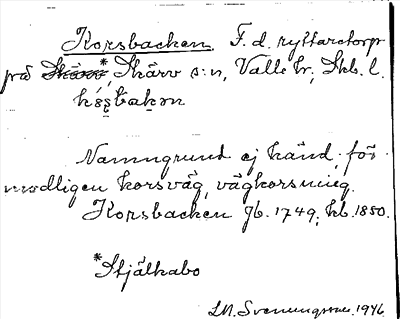 Korsbacken. F. d. ryttaretorp
på * Skärv s:n, Valle hr, Skb. l.
Namngrund ej känd. för
modligen korsväg, vägkorsning.
Korsbacken Jb. 1749, kb. 1850.
*Stjälkabo
1946.